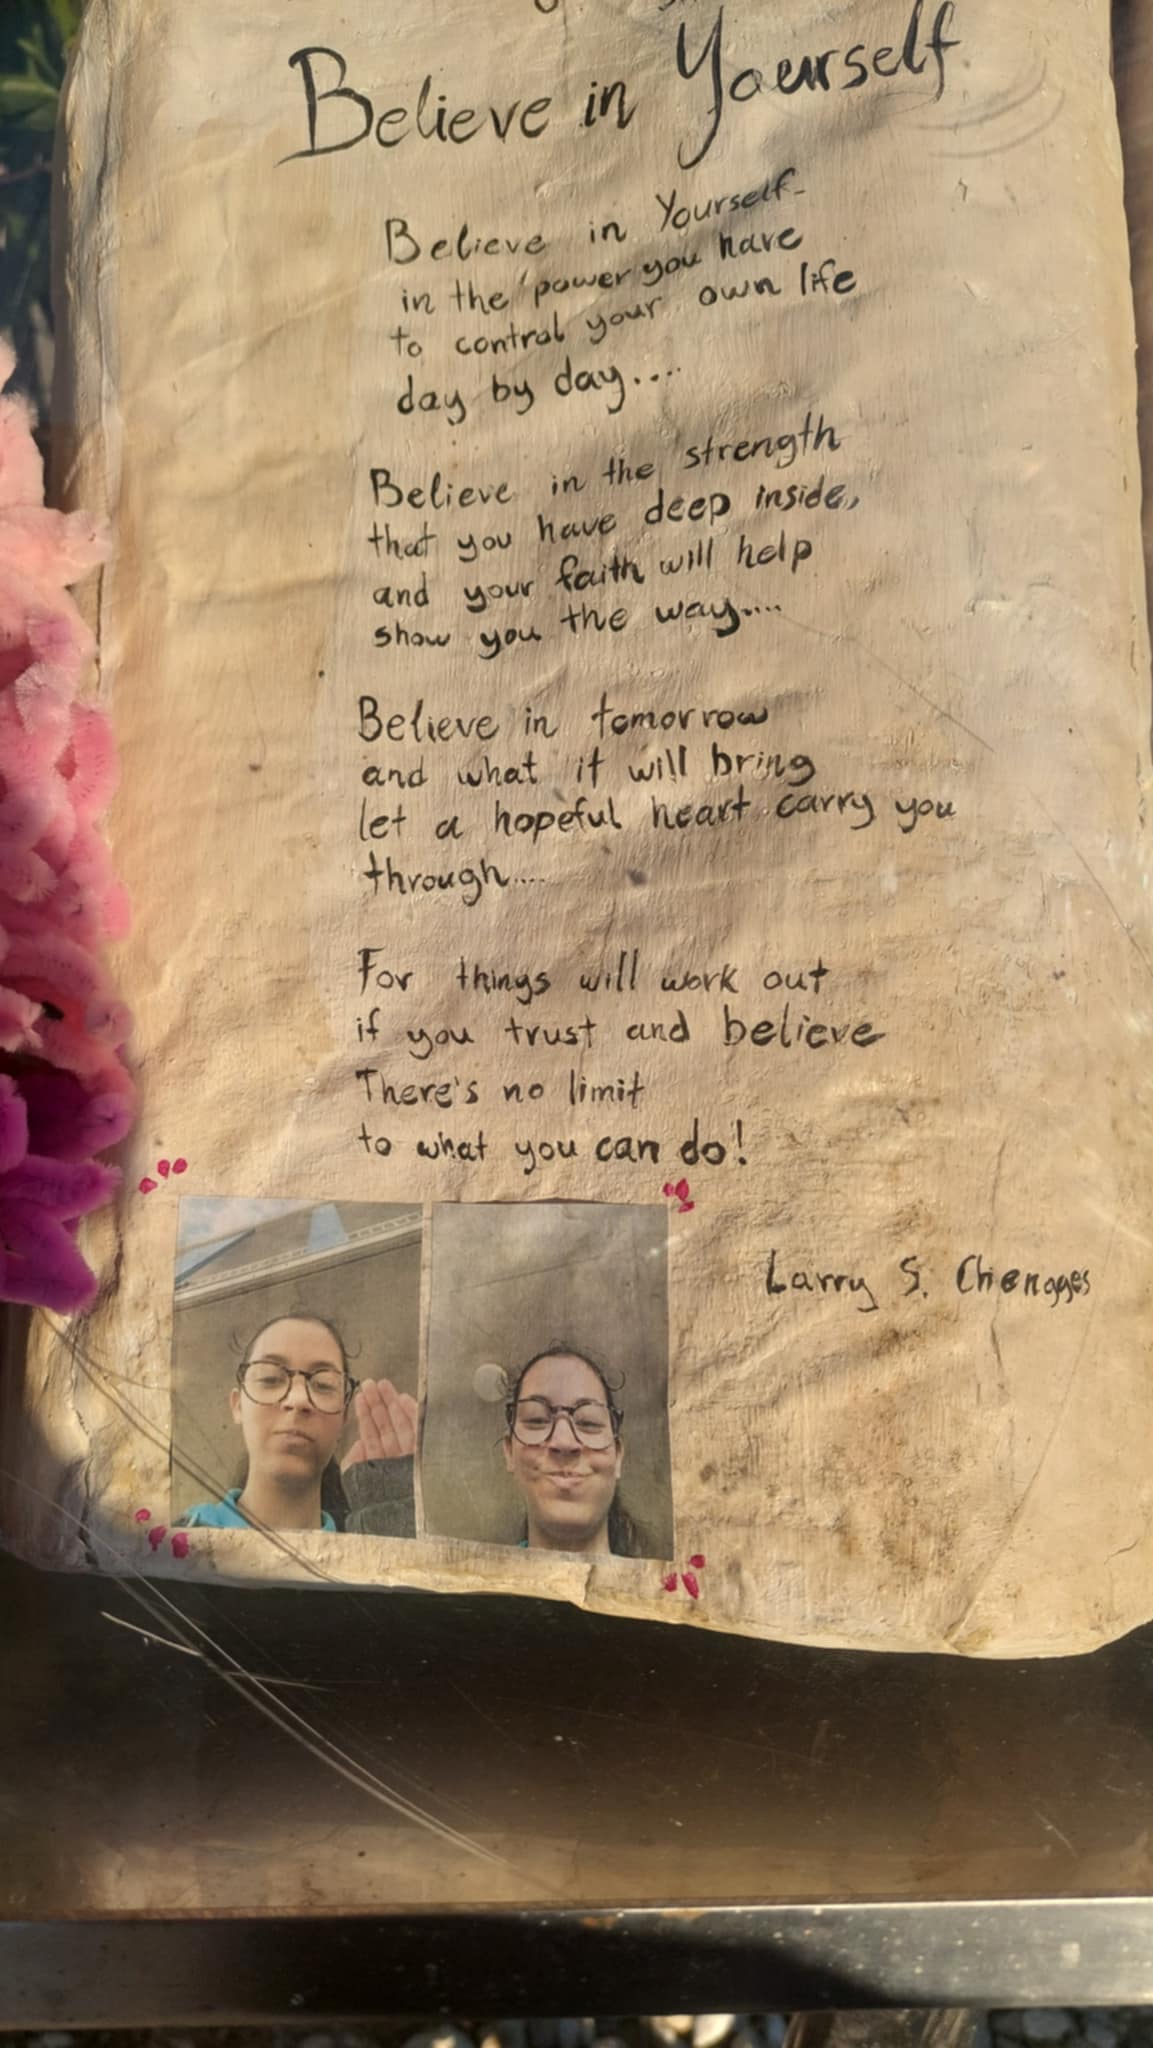 Believe in Yourself
Believe in Yourself-
in the power you have
to control your own life
day by day....
Believe in the strength
that you have deep inside,
and your faith will help
show you the way....
Believe in tomorrow
and what it will bring
let a hopeful heart carry you
through....
For things will work out
if you trust and believe
There's no limit
to what you can do!
Larry S. Chengges